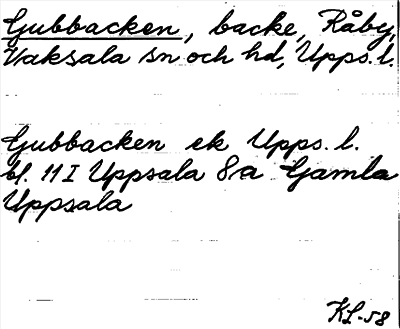 Gubbacken, backe, Råby,
Vaksala sn och hd, Upps. l.
Gubbacken ek Upps. l.
bl. 11 I Uppsala 8a Gamla
Uppsala
KL-58